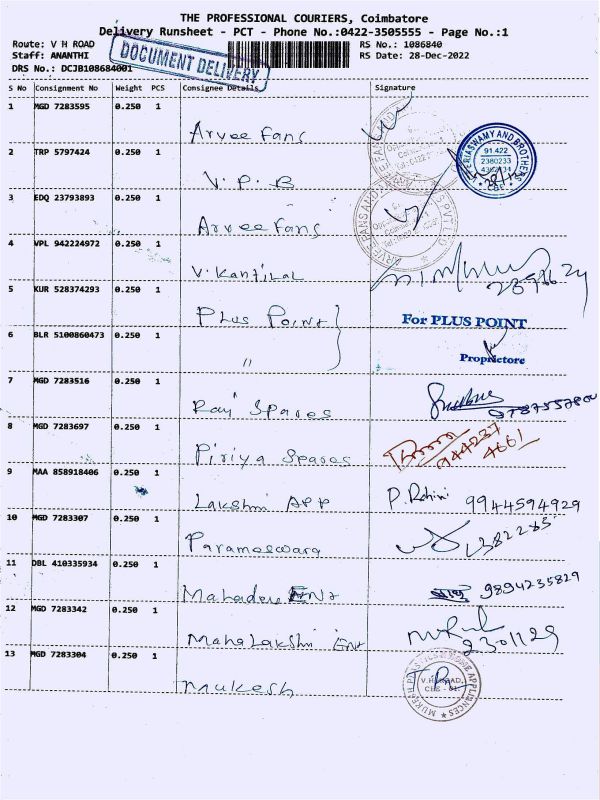 THE PROFESSIONAL COURIERS, Coimbatore
Delivery Runsheet - PCT - Phone No.:0422-3505555 - Page No.:1
Route: V H ROAD RS No.: 1086840
Staff: ANANTHI RS Date: 28-Dec-2022
DOCUMENT DELIVERY
DRS No.: DCJB108684001
S No Consignment No Weight PCS Consignee Details Signature
1 MGD 7283595 0.250 1 Arvee Fans
2 TRP 5797424 0.250 1 V.P.B
PERIASWAMY AND BROTHERS
91.422
2380233
CBE
3 EDQ 23793893 0.250 1 Arvee Fans
4 VPL 942224972 0.250 1 V. Kantilal
5 KUR 528374293 0.250 1 Plus Point
For PLUS POINT
6 BLR 5100860473 0.250 1 "
Proprietore
7 MGD 7283516 0.250 1 Raj Spares
8 MGD 7283697 0.250 1 Piriya Spares 944237
4661
9 MAA 858918406 0.250 1 Lakshmi APP P. Rohini 9944594929
10 MGD 7283307 0.250 1 Parameswara
11 DBL 410335934 0.250 1 Mahadev Ent 9894235829
12 MGD 7283342 0.250 1 Mahalakshmi Ent 2301129
13 MGD 7283304 0.250 1 Mukesh
V.H. ROAD,
CBE - 01.